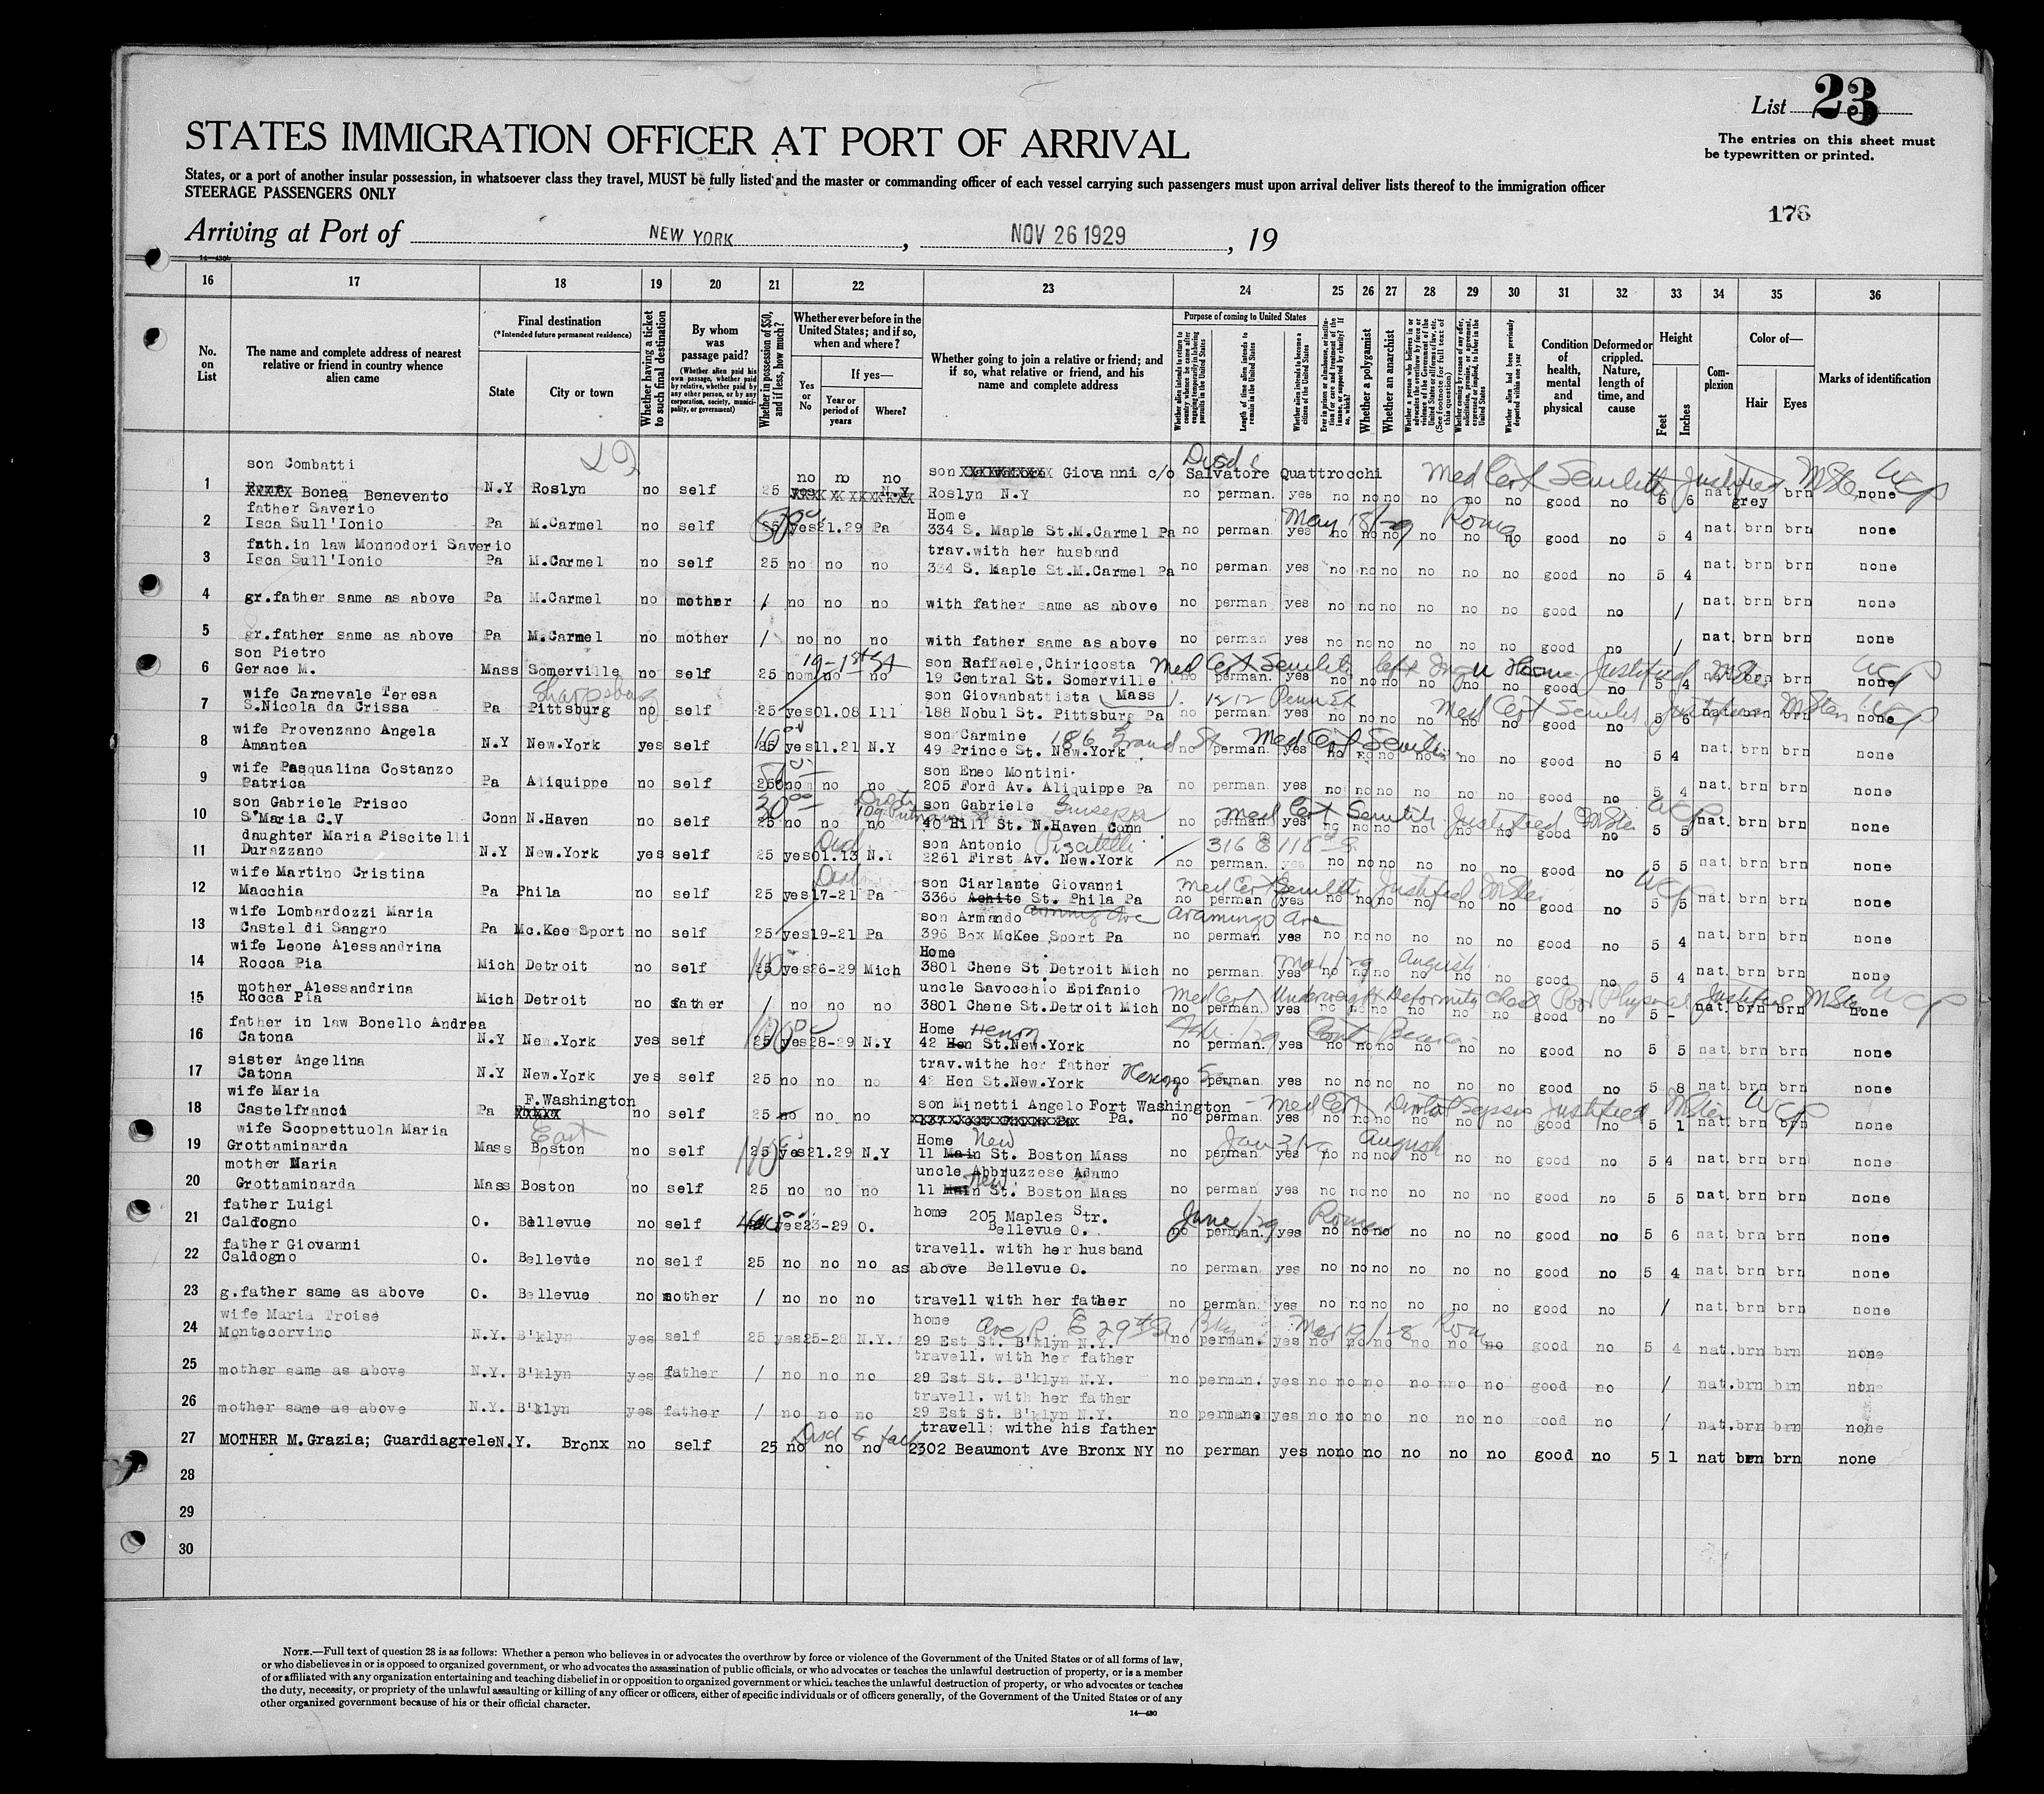 List 23
The entries on this sheet must
be typewritten or printed.
STATES IMMIGRATION OFFICER AT PORT OF ARRIVAL
States, or a port of another insular possession, in whatsoever class they travel, MUST be fully listed and the master or commanding officer of each vessel carrying such passengers must upon arrival deliver lists thereof to the immigration officer
STEERAGE PASSENGERS ONLY
176
Arriving at Port of NEW YORK, NOV 26 1929, 19
14—430
16 17 18 19 20 21 22 23 24 25 26 27 28 29 30 31 32 33 34 35 36
No. on List
The name and complete address of nearest relative or friend in country whence alien came
Final destination
(*Intended future permanent residence)
State
City or town
Whether having a ticket to such final destination
By whom was passage paid?
(Whether alien paid his own passage, whether paid by relative, whether paid by any other person, or by any corporation, society, municipality, or government)
Whether in possession of $50, and if less, how much?
Whether ever before in the United States; and if so, when and where?
Yes or No
If yes—
Year or period of years
Where?
Whether going to join a relative or friend; and if so, what relative or friend, and his name and complete address
Purpose of coming to United States
Whether alien intends to return to country whence he came after engaging temporarily in laboring pursuits in the United States
Length of time alien intends to remain in the United States
Whether alien intends to become a citizen of the United States
Ever in prison or almshouse, or institution for care and treatment of the insane, or supported by charity? If so, which?
Whether a polygamist
Whether an anarchist
Whether a person who believes in or advocates the overthrow by force or violence of the Government of the United States or all forms of law, etc. (See footnote for full text of this question)
Whether coming by reason of any offer, solicitation, promise, or agreement, expressed or implied, to labor in the United States
Whether alien had been previously deported within one year
Condition of health, mental and physical
Deformed or crippled. Nature, length of time, and cause
Height
Feet
Inches
Complexion
Color of—
Hair
Eyes
Marks of identification
son Combatti no no no son Giovanni c/o Salvatore Quattrocchi Med Cert Senility Justified
1 Bonea Benevento N.Y Roslyn no self 25 N.Y Roslyn N.Y no perman. yes no no no no no no good no 5 6 nat grey brn none
father Saverio Home May 18/29 Roma
2 Isca Sull'Ionio Pa M.Carmel no self 25 yes 21.29 Pa 334 S. Maple St.M.Carmel Pa no perman. yes no no no no no no good no 5 4 nat. brn brn none
fath.in law Monnodori Saverio trav.with her husband
3 Isca Sull'Ionio Pa M.Carmel no self 25 no no no 334 S. Maple St.M.Carmel Pa no perman. yes no no no no no no good no 5 4 nat. brn brn none
4 gr.father same as above Pa M.Carmel no mother / no no no with father same as above no perman yes no no no no no no good no / nat. brn brn none
5 gr.father same as above Pa M.Carmel no mother / no no no with father same as above no perman yes no no no no no no good no / nat. brn brn none
son Pietro son Raffaele,Chiricosta Med Cert Senility Justified
6 Gerace M. Mass Somerville no self 25 no no no 19 Central St. Somerville no perman. yes no no no no no no good no 5 4 nat brn brn none
wife Carnevale Teresa Sharpsburg son Giovanbattista Mass 1212 Penn St
7 S.Nicola da Crissa Pa Pittsburg no self 25 yes 01.08 Ill 188 Nobul St. Pittsburg Pa no perman. yes no no no no no no good no 5 6 nat brn brn none
wife Provenzano Angela son Carmine 186 Grand St Med Cert Senility
8 Amantea N.Y New.York yes self 25 yes 11.21 N.Y 49 Prince St. New.York no perman. yes no no no no no no good no 5 4 nat. brn brn none
wife Pasqualina Costanzo son Eneo Montini.
9 Patrica Pa Aliquippe no self 25 no no no 205 Ford Av. Aliquippe Pa no perman. yes no no no no no no good no 5 4 nat. brn brn none
son Gabriele Prisco son Gabriele Med Cert Senility Justified
10 S.Maria C.V Conn N.Haven no self 25 no no no 40 Hill St. N.Haven Conn no perman. yes no no no no no no good no 5 5 nat. brn brn none
daughter Maria Piscitelli son Antonio Piscitelli 316 E 118th St
11 Durazzano N.Y New.York yes self 25 yes 01.13 N.Y 2261 First Av. New.York no perman. yes no no no no no no good no 5 5 nat. brn brn none
wife Martino Cristina son Ciarlante Giovanni Med Cert Senility Justified
12 Macchia Pa Phila no self 25 yes 17-21 Pa 3366 Achite St. Phila Pa no perman yes no no no no no no good no 5 5 nat. brn brn none
wife Lombardozzi Maria son Armando Aramingo Ave
13 Castel di Sangro Pa Mc.Kee Sport no self 25 yes 19-21 Pa 396 Box McKee Sport Pa no perman. yes no no no no no no good no 5 4 nat. brn brn none
wife Leone Alessandrina Home
14 Rocca Pia Mich Detroit no self 25 yes 26-29 Mich 3801 Chene St Detroit Mich no perman. yes no no no no no no good no 5 4 nat. brn brn none
mother Alessandrina uncle Savocchio Epifanio Med Cert Underweight Deformity Chest Poor Physical Justified
15 Rocca Pia Mich Detroit no father / no no no 3801 Chene St.Detroit Mich no perman. yes no no no no no no good no 5 - nat. brn brn none
father in law Bonello Andrea Home Henry
16 Catona N.Y New.York yes self 25 yes 28-29 N.Y 42 Hen St.New.York no perman. yes no no no no no no good no 5 5 nat brn brn none
sister Angelina trav.withe her father Henry St
17 Catona N.Y New.York yes self 25 no no no 42 Hen St.New.York no perman. yes no no no no no no good no 5 8 nat brn brn none
wife Maria F.Washington son Minetti Angelo Fort Washington Med Cert Dental Sepsis Justified
18 Castelfranci Pa no self 25 no no no Pa. no perman. yes no no no no no no good no 5 1 nat brn brn none
wife Scoppettuola Maria East Home New
19 Grottaminarda Mass Boston no self 25 yes 21.29 N.Y 11 Main St. Boston Mass no perman yes no no no no no no good no 5 4 nat brn brn none
mother Maria uncle Abbruzzese Adamo New
20 Grottaminarda Mass Boston no self 25 no no no 11 Main St. Boston Mass no perman yes no no no no no no good no 5 5 nat. brn brn none
father Luigi home 205 Maples Str. June /29 Roma
21 Caldogno O. Bellevue no self yes 23-29 O. Bellevue O. no perman. yes no no no no no no good no 5 6 nat. brn brn none
father Giovanni travell. with her husband
22 Caldogno O. Bellevue no self 25 no no no as above Bellevue O. no perman. yes no no no no no no good no 5 4 nat. brn brn none
23 g.father same as above O. Bellevue no mother / no no no travell with her father no perman. yes no no no no no no good no / nat. brn brn none
wife Maria Troise home Ave R E 29th St
24 Montecorvino N.Y. B'klyn yes self 25 yes 25-28 N.Y. 29 Est St. B'klyn N.Y. no perman. yes no no no no no no good no 5 4 nat. brn brn none
travell. with her father
25 mother same as above N.Y. B'klyn yes father / no no no 29 Est St. B'klyn N.Y. no perman. yes no no no no no no good no / nat. brn brn none
travell. with her father
26 mother same as above N.Y. B'klyn yes father / no no no 29 Est St. B'klyn N.Y. no perman yes no no no no no no good no / nat. brn brn none
travell; withe his father
27 MOTHER M.Grazia; Guardiagrele N.Y. Bronx no self 25 no no no 2302 Beaumont Ave Bronx NY no perman yes no no no no no no good no 5 1 nat brn brn none
28
29
30
NOTE.—Full text of question 28 is as follows: Whether a person who believes in or advocates the overthrow by force or violence of the Government of the United States or of all forms of law,
or who disbelieves in or is opposed to organized government, or who advocates the assassination of public officials, or who advocates or teaches the unlawful destruction of property, or is a member
of or affiliated with any organization entertaining and teaching disbelief in or opposition to organized government or which teaches the unlawful destruction of property, or who advocates or teaches
the duty, necessity, or propriety of the unlawful assaulting or killing of any officer or officers, either of specific individuals or of officers generally, of the Government of the United States or of any
other organized government because of his or their official character.
14—430